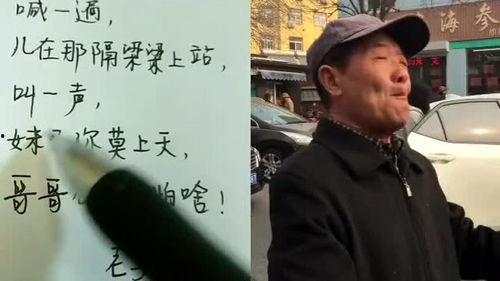 喊一遍，
儿在那隔梁梁上站，
叫一声，
妹 你莫上天，
哥哥 怕啥！
老
海参